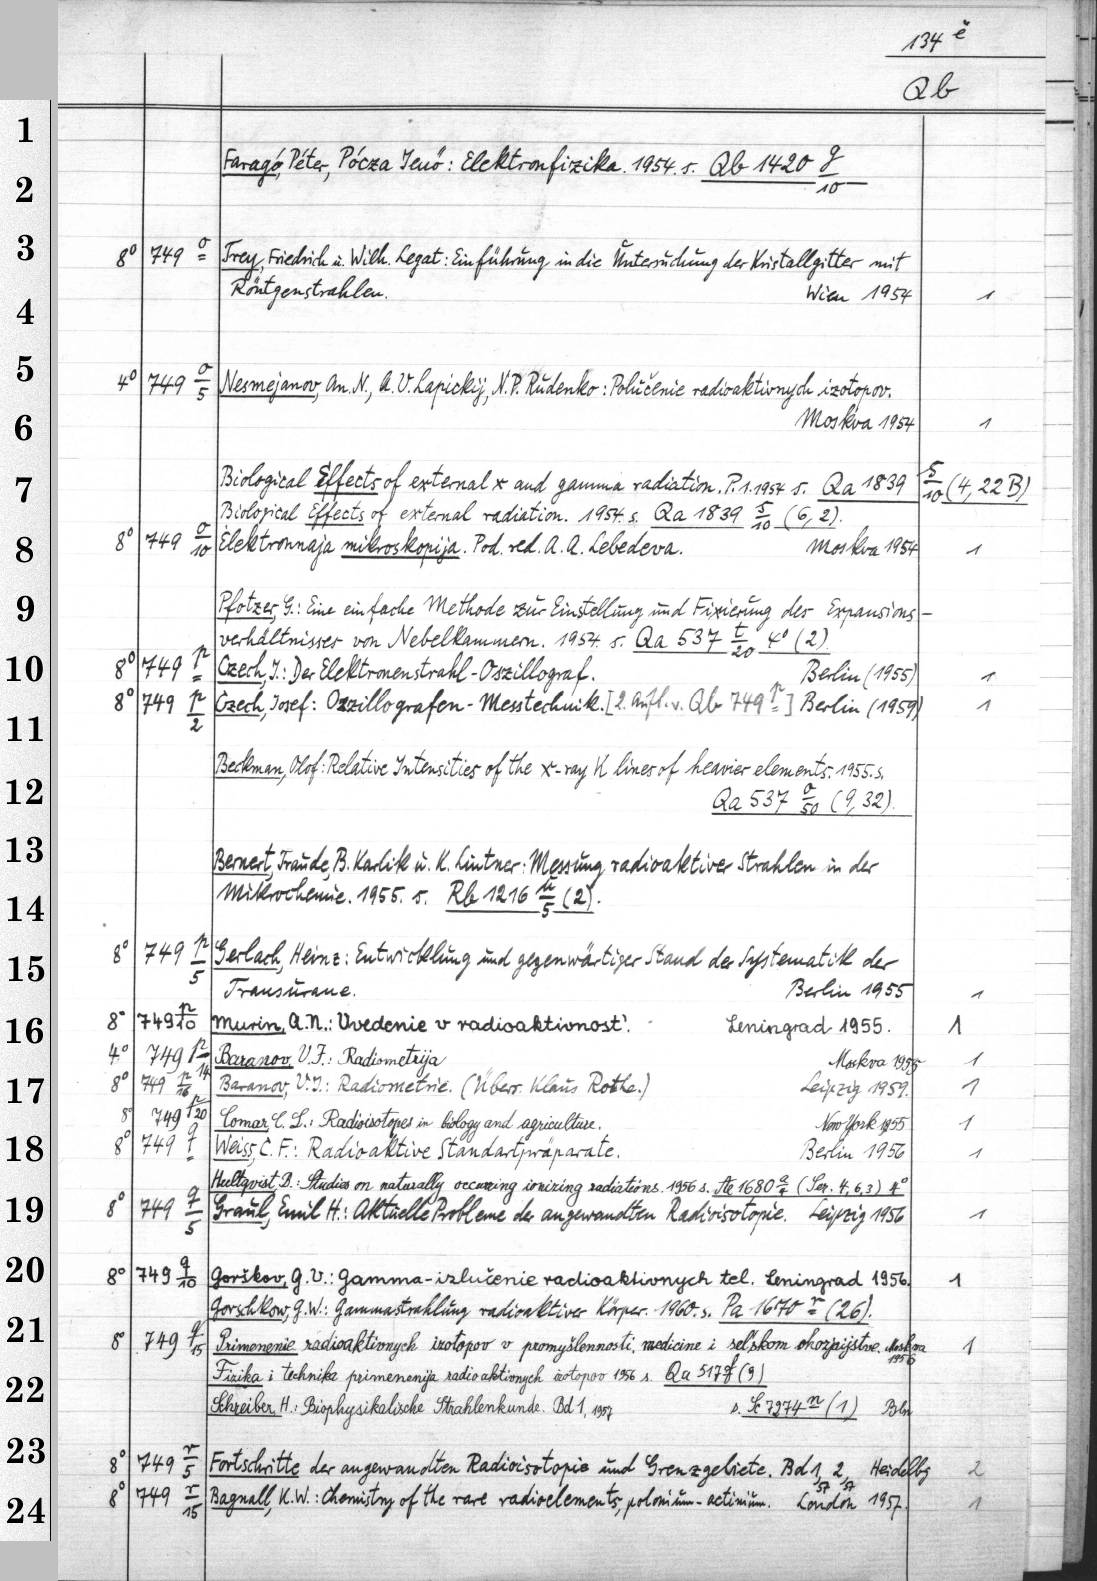 134 č
Qb
1
Faragó, Péter, Pócza Jenő: Elektronfizika. 1954. s. Qb 1420 g/10
2
3
8° 749 o Trey, Friedrich u. Wilh. Legat: Einführung in die Untersuchung der Kristallgitter mit
Röntgenstrahlen. Wien 1954 1
4
5
4° 749 o/5 Nesmejanov, An. N., A. V. Lapickij, N. P. Rudenko: Polučenie radioaktivnych izotopov.
6
Moskva 1954 1
7
Biological Effects of external x and gamma radiation. P. 1. 1954 s. Qa 1839 s/10 (4, 22 B)
Biological Effects of external radiation. 1954. s. Qa 1839 s/10 (6, 2).
8
8° 749 o/10 Elektronnaja mikroskopija. Pod. red. A. A. Lebedeva. Moskva 1954 1
9
Pfotzer, G.: Eine einfache Methode zur Einstellung und Fixierung des Expansions-
verhältnisses von Nebelkammern. 1954. s. Qa 537 t/20 4° (2)
10
8° 749 p Czech, J.: Der Elektronenstrahl-Oszillograf. Berlin (1955) 1
8° 749 p/2 Czech, Josef: Oszillografen-Messtechnik. [2. Aufl. v. Qb 749 p] Berlin (1959) 1
11
Beckman, Olof: Relative Intensities of the x-ray K lines of heavier elements. 1955. s.
12
Qa 537 o/50 (9, 32).
13
Bernert, Traude, B. Karlik u. K. Lintner: Messung radioaktiver Strahlen in der
Mikrochemie. 1955. s. Rb 1216 u/5 (2).
14
8° 749 p/5 Gerlach, Heinz: Entwicklung und gegenwärtiger Stand der Systematik der
15
Transurane. Berlin 1955 1
16
8° 749 p/10 Murin, A. N.: Vvedenie v radioaktivnost'. Leningrad 1955. 1
4° 749 p/14 Baranov, V. F.: Radiometrija Moskva 1955 1
17
8° 749 p/16 Baranov, V. I.: Radiometrie. (Übers. Klaus Rothe.) Leipzig 1959. 1
8° 749 p/20 Comar, C. L.: Radioisotopes in biology and agriculture. New York 1955 1
18
8° 749 q Weiss, C. F.: Radioaktive Standartpräparate. Berlin 1956 1
Hultqvist, B.: Studies on naturally occuring ionizing radiations. 1956 s. Ae 1680 a/4 (Ser. 4, 6, 3) 4°
19
8° 749 q/5 Graul, Emil H.: Aktuelle Probleme der angewandten Radioisotopie. Leipzig 1956 1
20
8° 749 q/10 Gorškov, G. V.: Gamma-izlučenie radioaktivnych tel. Leningrad 1956. 1
Gorschkow, G. W.: Gammastrahlung radioaktiver Körper. 1960. s. Pa 1670 r (26).
21
8° 749 q/15 Primenenie radioaktivnych izotopov v promyšlennosti, medicine i sel'skom chozjajstve. Moskva 1956 1
Fizika i technika primenenija radioaktivnych izotopov 1956 s. Qa 517 f (9)
22
Schreiber, H.: Biophysikalische Strahlenkunde. Bd 1, 1957 s. Sc 7274 n (1) Bln
23
8° 749 r/5 Fortschritte der angewandten Radioisotopie und Grenzgebiete. Bd 1, 57 2, 57 Heidelbg 2
24
8° 749 r/15 Bagnall, K. W.: Chemistry of the rare radioelements, polonium-actinium. London 1957. 1